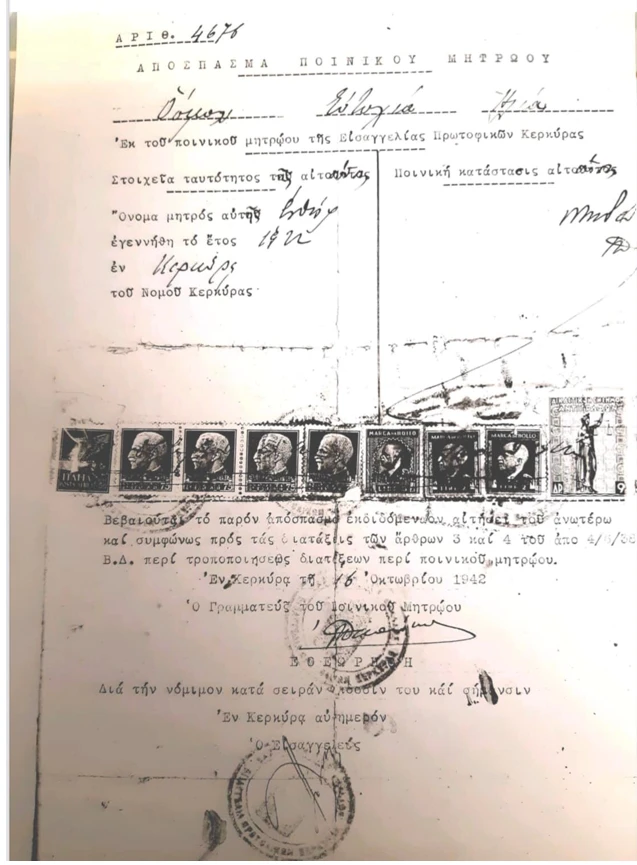 ΑΡΙΘ. 4676
ΑΠΟΣΠΑΣΜΑ ΠΟΙΝΙΚΟΥ ΜΗΤΡΩΟΥ
Εὐτυχία Ἠλία
Ἐκ τοῦ ποινικοῦ μητρώου τῆς Εἰσαγγελίας Πρωτοφικῶν Κερκύρας
Στοιχεῖα ταυτότητος τῆς
Ποινική κατάστασις
Ὄνομα μητρός αὐτῆς
ἐγεννήθη τό ἔτος 1922
ἐν Κερκύρᾳ
τοῦ Νομοῦ Κερκύρας
ITALIA
MARCA DA BOLLO
MARCA DA BOLLO
MARCA DA BOLLO
Βεβαιοῦται τό παρόν ἀπόσπασμα ἐκδιδόμενον αἰτήσει τοῦ ἀνωτέρω
καί συμφώνως πρός τάς διατάξεις τῶν ἄρθρων 3 καί 4 τοῦ ἀπο 4/6/36
Β.Δ. περί τροποποιήσεως διατάξεων περί ποινικοῦ μητρώου.
Ἐν Κερκύρᾳ τῇ 16 Ὀκτωβρίου 1942
Ὁ Γραμματεύς τοῦ Ποινικοῦ Μητρώου
ΕΘΕΩΡΗΘΗ
Διά τήν νόμιμον κατά σειράν του καί σήμανσιν
Ἐν Κερκύρᾳ αὐθημερόν
Ὁ Εἰσαγγελεύς